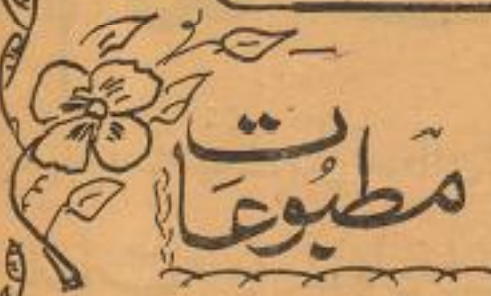 مطبُوعَات